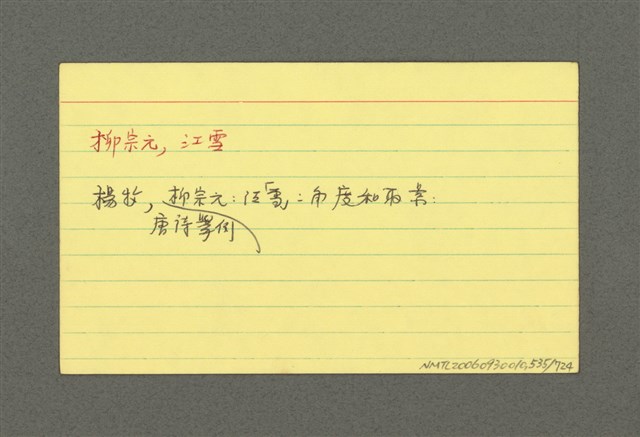 柳宗元, 江雪
楊牧, 柳宗元:江「雪」:角度和兩景:
唐詩舉例
NMTL20060930010,535/724